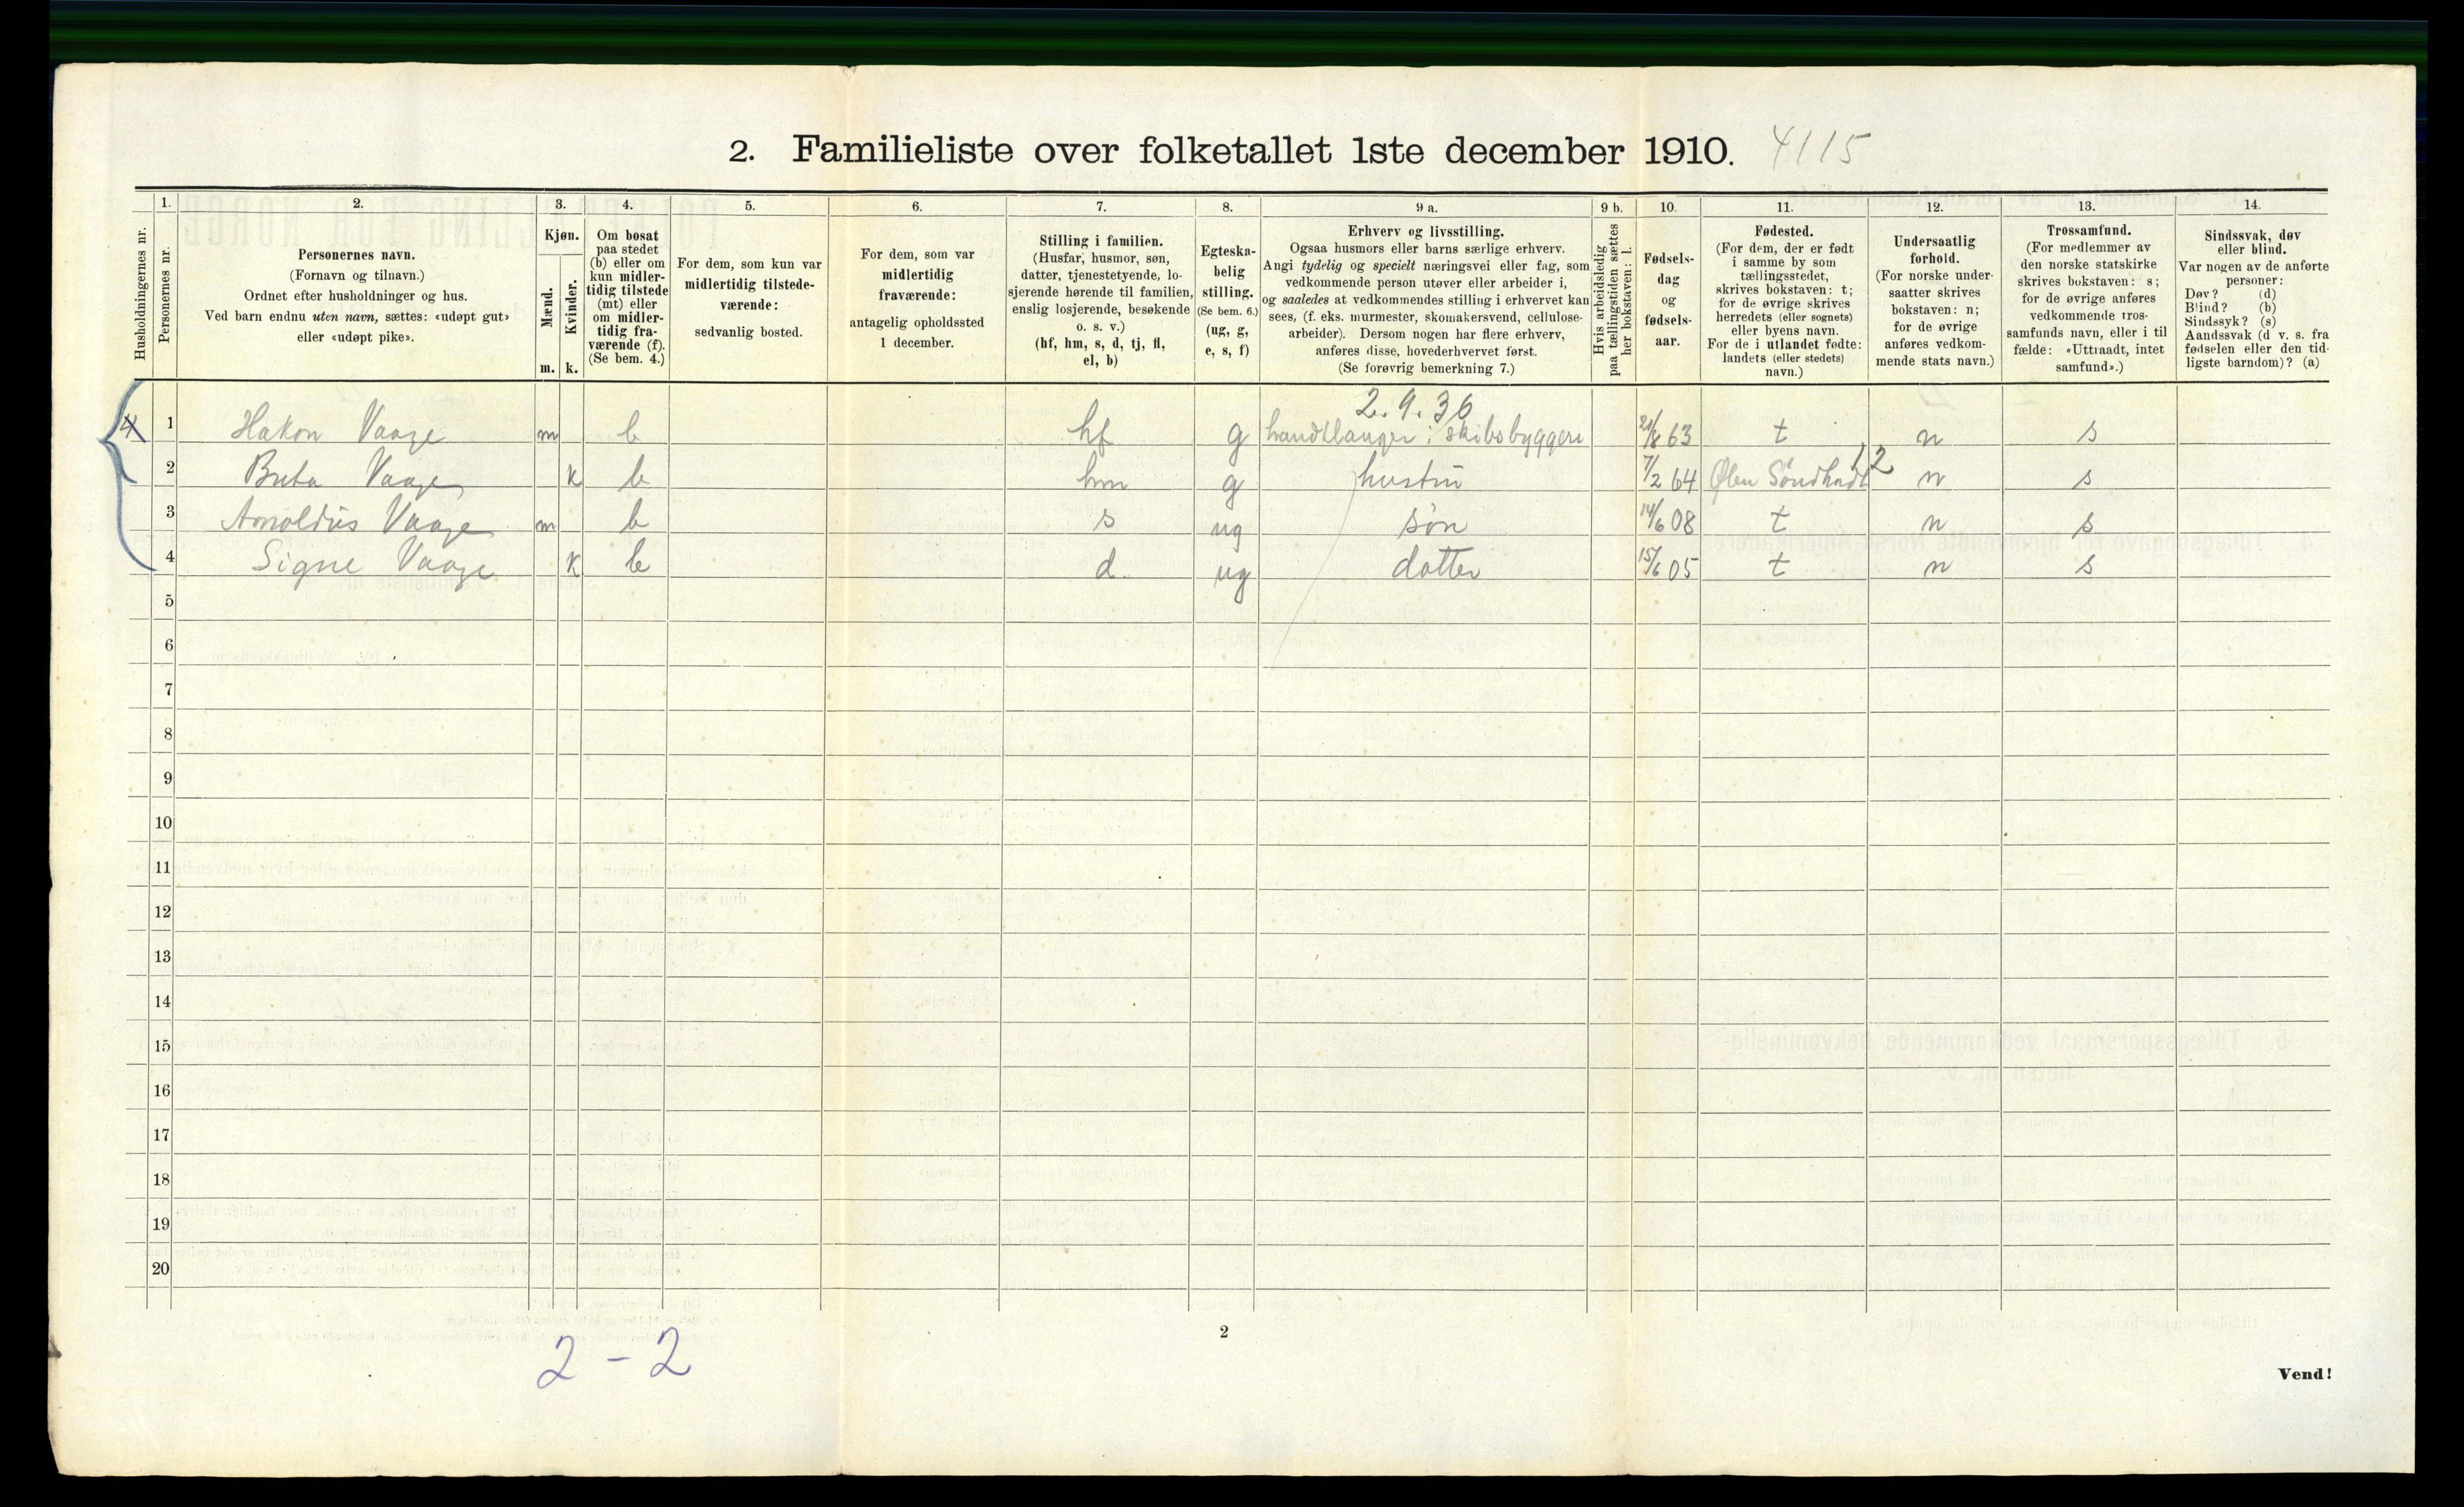 2. Familieliste over folketallet 1ste december 1910. 4115
Husholdningernes nr.
1.
Personernes nr.
2.
Personernes navn.
(Fornavn og tilnavn.)
Ordnet efter husholdninger og hus.
Ved barn endnu uten navn, sættes: «udøpt gut»
eller «udøpt pike».
3.
Kjøn.
Mænd.
Kvinder.
m. k.
4.
Om bosat
paa stedet
(b) eller om
kun midler-
tidig tilstede
(mt) eller
om midler-
tidig fra-
værende (f).
(Se bem. 4.)
5.
For dem, som kun var
midlertidig tilstede-
værende:
sedvanlig bosted.
6.
For dem, som var
midlertidig
fraværende:
antagelig opholdssted
1 december.
7.
Stilling i familien.
(Husfar, husmor, søn,
datter, tjenestetyende, lo-
sjerende hørende til familien,
enslig losjerende, besøkende
o. s. v.)
(hf, hm, s, d, tj, fl,
el, b)
8.
Egteska-
belig
stilling.
(Se bem. 6.)
(ug, g,
e, s, f)
9 a.
Erhverv og livsstilling.
Ogsaa husmors eller barns særlige erhverv.
Angi tydelig og specielt næringsvei eller fag, som
vedkommende person utøver eller arbeider i,
og saaledes at vedkommendes stilling i erhvervet kan
sees, (f. eks. murmester, skomakersvend, cellulose-
arbeider). Dersom nogen har flere erhverv,
anføres disse, hovederhvervet først.
(Se forøvrig bemerkning 7.)
9 b.
Hvis arbeidsledig
paa tællingstiden sættes
her bokstaven: l.
10.
Fødsels-
dag
og
fødsels-
aar.
11.
Fødested.
(For dem, der er født
i samme by som
tællingsstedet,
skrives bokstaven: t;
for de øvrige skrives
herredets (eller sognets)
eller byens navn.
For de i utlandet fødte:
landets (eller stedets)
navn.)
12.
Undersaatlig
forhold.
(For norske under-
saatter skrives
bokstaven: n;
for de øvrige
anføres vedkom-
mende stats navn.)
13.
Trossamfund.
(For medlemmer av
den norske statskirke
skrives bokstaven: s;
for de øvrige anføres
vedkommende tros-
samfunds navn, eller i til
fælde: «Uttraadt, intet
samfund».)
14.
Sindssvak, døv
eller blind.
Var nogen av de anførte
personer:
Døv? (d)
Blind? (b)
Sindssyk? (s)
Aandssvak (d v. s. fra
fødselen eller den tid-
ligste barndom)? (a)
2.9.36
4 1 Hakon Vaage m b hf g handtlanger i skibsbyggeri 21/8 63 t n s
12
2 Brita Vaage k b hm g hustru 7/2 64 Ølen Søndhndl n s
3 Arnoldus Vaage m b s ug søn 14/6 08 t n s
4 Signe Vaage k b d ug datter 15/6 05 t n s
5
6
7
8
9
10
11
12
13
14
15
16
17
18
19
20
2
2 - 2
Vend!